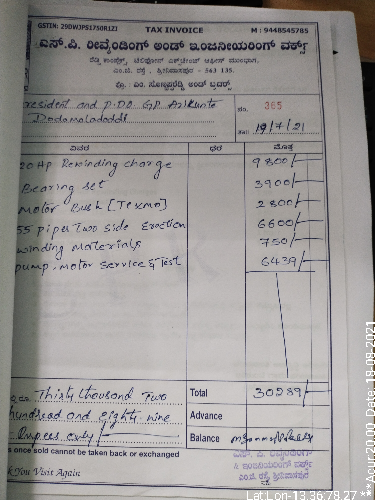 GSTIN: 29DWJPS1750R1ZJ TAX INVOICE M : 9448545785
ಎಸ್.ಪಿ. ರೀವೈಂಡಿಂಗ್ ಅಂಡ್ ಇಂಜಿನೀಯರಿಂಗ್ ವರ್ಕ್ಸ್
ರೆಡ್ಡಿ ಕಾಂಪ್ಲೆಕ್ಸ್, ಟೆಲಿಫೋನ್ ಎಕ್ಸ್‌ಚೇಂಜ್ ಆಫೀಸ್ ಮುಂಭಾಗ,
ಎಂ.ಜಿ. ರಸ್ತೆ, ಶ್ರೀನಿವಾಸಪುರ - 563 135.
resident and P.D.O GP Arikunte
Dodamaladoddi
ನಂ. 365
19/7/21
ವಿವರ ದರ ಮೊತ್ತ
20 Hp Rewinding charge 9800/-
Bearing set 3900/-
Motor Bush [Texmo] 2800/-
55 pipes Two side Erection 6600/-
winding materials 750/-
pump, motor service & Test 6439/-
Thirty thousand Two
hundread and eighty nine
Rupees only/-
Total 30289/-
Advance
Balance
s once sold cannot be taken back or exchanged
k You Visit Again
ಎಸ್. ಪಿ. ರೀವೈಂಡಿಂಗ್
& ಇಂಜಿನೀಯರಿಂಗ್ ವರ್ಕ್ಸ್
ಎಂ.ಜಿ. ರಸ್ತೆ, ಶ್ರೀನಿವಾಸಪುರ
Lat Lon-13.36:78.27 **Acur:20.00 Date, 18-09-2021